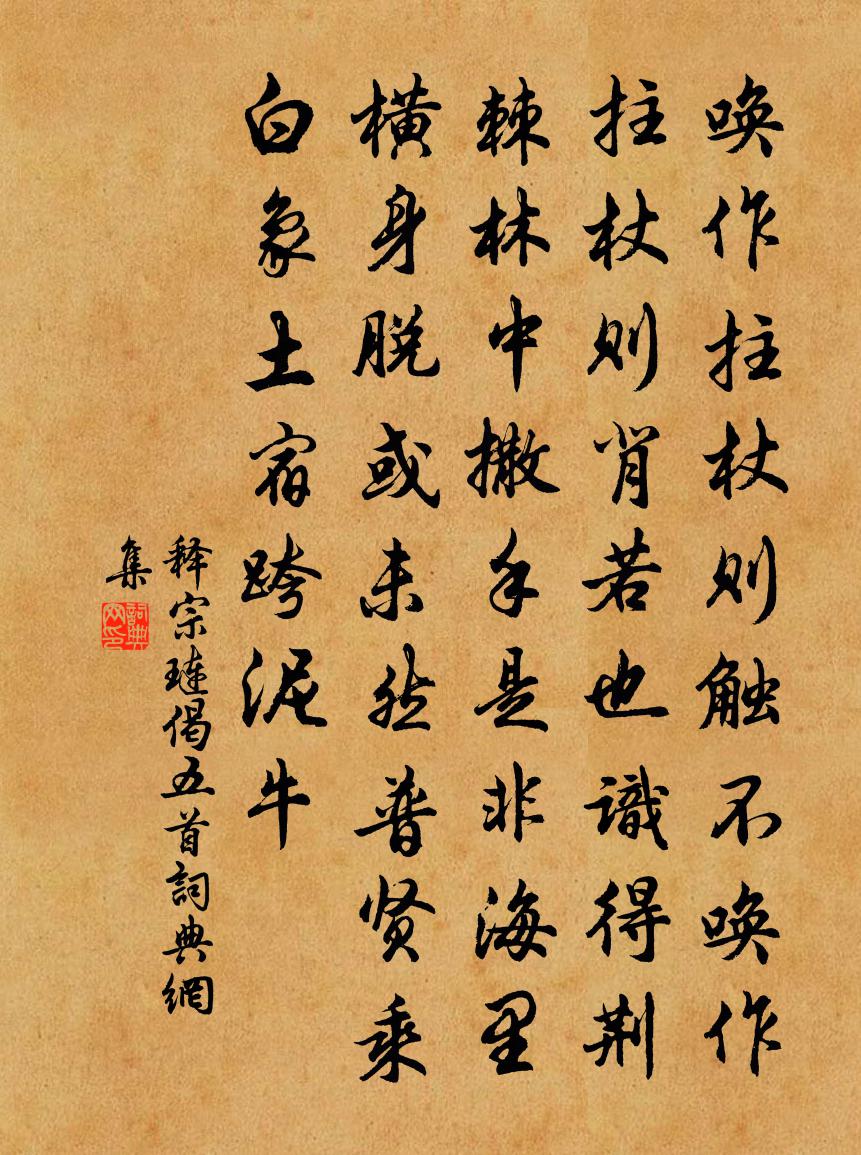 唤作拄杖则触不唤作
拄杖则背若也識得荆
棘林中撒手是非海里
横身脱或未然普贤乘
白象土宿跨泥牛
释宗琏偈五首詞典網
集
詞典网印